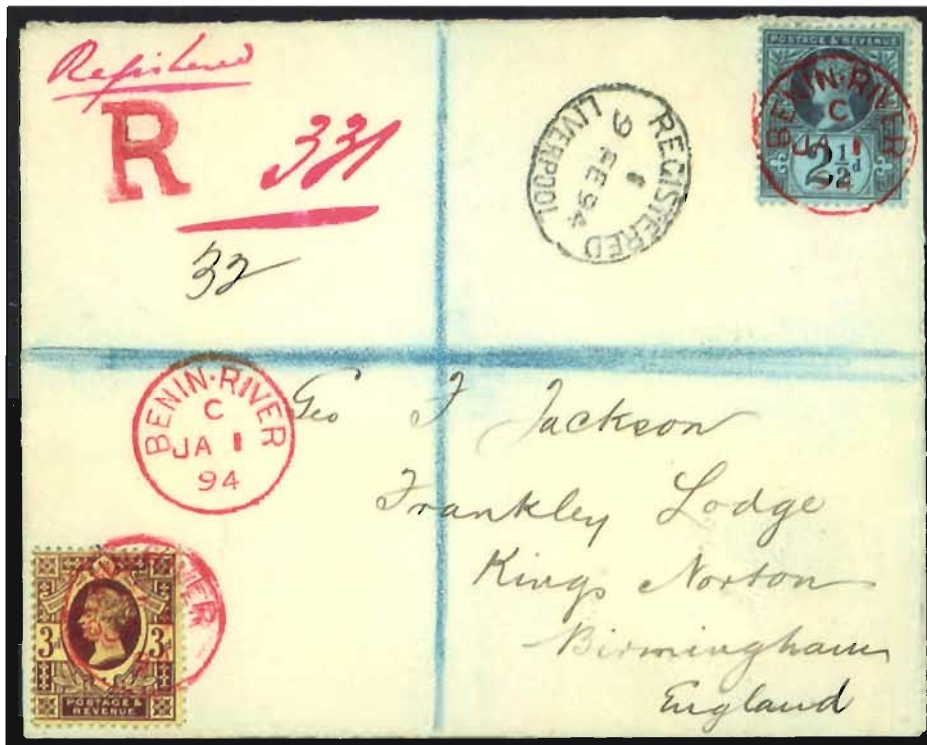 Registered
R 331
32
REGISTERED
1
9 FE 94
LIVERPOOL
POSTAGE & REVENUE
BENIN·RIVER
C
JA 1
2½d
BENIN·RIVER
C
JA 1
94
Geo F Jackson
Frankley Lodge
Kings Norton
Birmingham
England
3d 3d
POSTAGE &
REVENUE